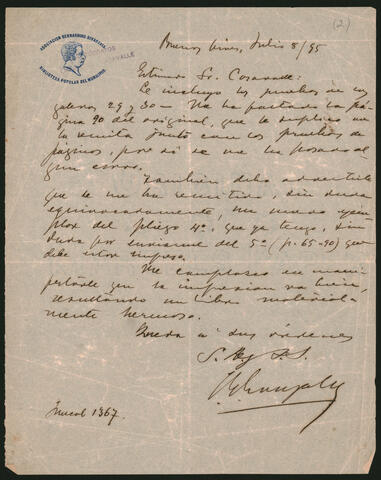 (2)
ASOCIACION BERNARDINO RIVADAVIA
BIBLIOTECA POPULAR DEL MUNICIPIO
Buenos Aires, Julio 8/95
Estimado Sr. Casavalle:
Le incluyo las pruebas de las
galeras 29 y 30 — Me ha faltado la pá-
gina 90 del original, que le suplico me
la remita junto con las pruebas de
páginas, por si se me ha pasado al-
gun error.
Tambien debo advertirle
que se me ha remitido, sin duda
equivocadamente, un nuevo ejem-
plar del pliego 4º, que ya tengo, sin
duda por enviarme del 5º (p. 65-90) que
debe estar impreso.
Me complazco en mani-
festarle que la impresion va bien,
resultando un libro material-
mente hermoso.
Queda a sus órdenes
S. S. S.
J. V. Gonzalez
1367.